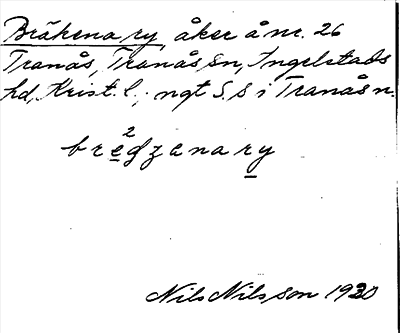 Bräkena ry, åker å nr. 26
Tranås, Tranås sn, Ingelstads
hd, Krist. l.; ngt S. S i Tranås n.
2
bredzenary
Nils Nilsson 1930